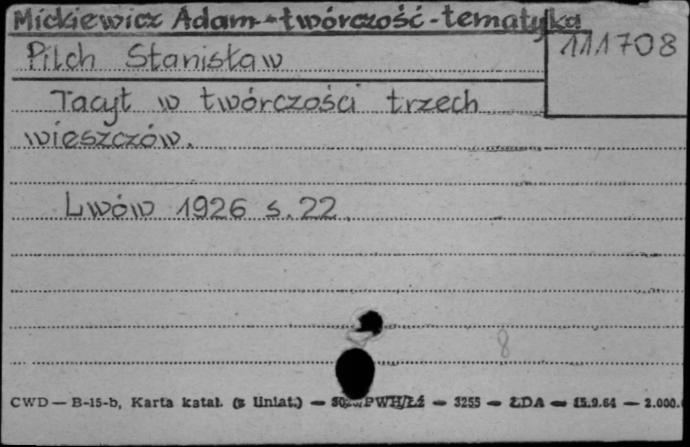 Mickiewicz Adam - twórczość - tematyka
111708
Pilch Stanisław
Tacyt w twórczości trzech
wieszczów.
Lwów 1926 s. 22
8
CWD — B-15-b, Karta katal. (z liniat.) — PWH/Łź — 3255 — ŁDA — 15.9.64 — 2.000.